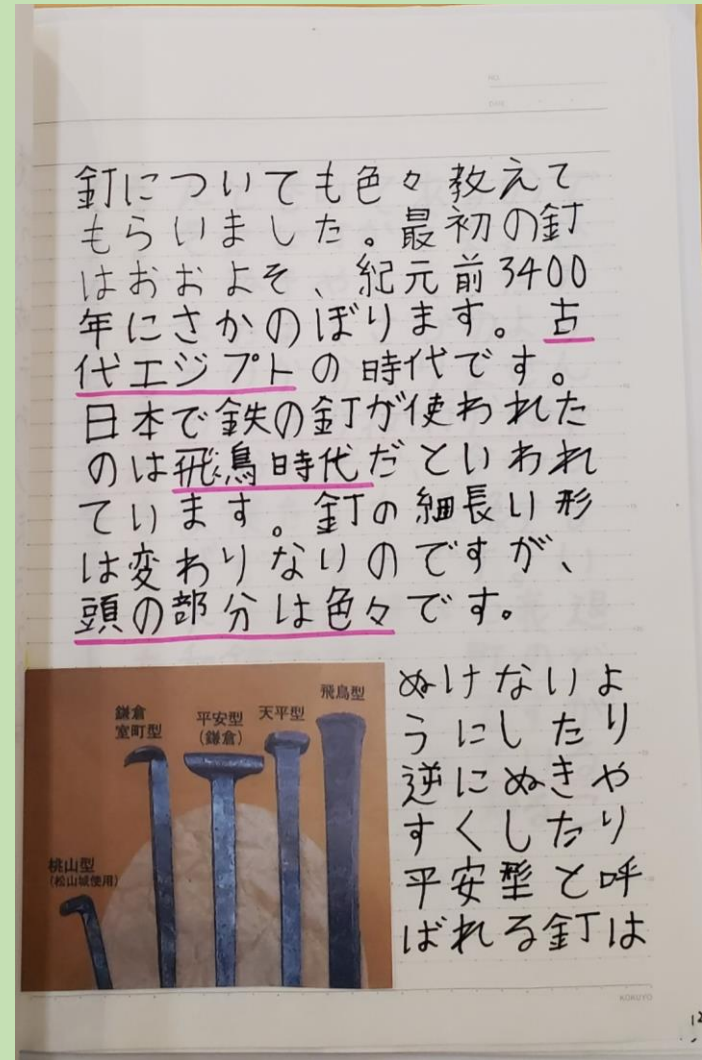 釘についても色々教えて
もらいました。最初の釘
はおおよそ、紀元前3400
年にさかのぼります。古
代エジプトの時代です。
日本で鉄の釘が使われた
のは飛鳥時代だといわれ
ています。釘の細長い形
は変わりないのですが、
頭の部分は色々です。
飛鳥型
天平型
平安型
(鎌倉)
鎌倉
室町型
桃山型
(松山城使用)
ぬけないよ
うにしたり
逆にぬきや
すくしたり
平安型と呼
ばれる釘は
KOKUYO